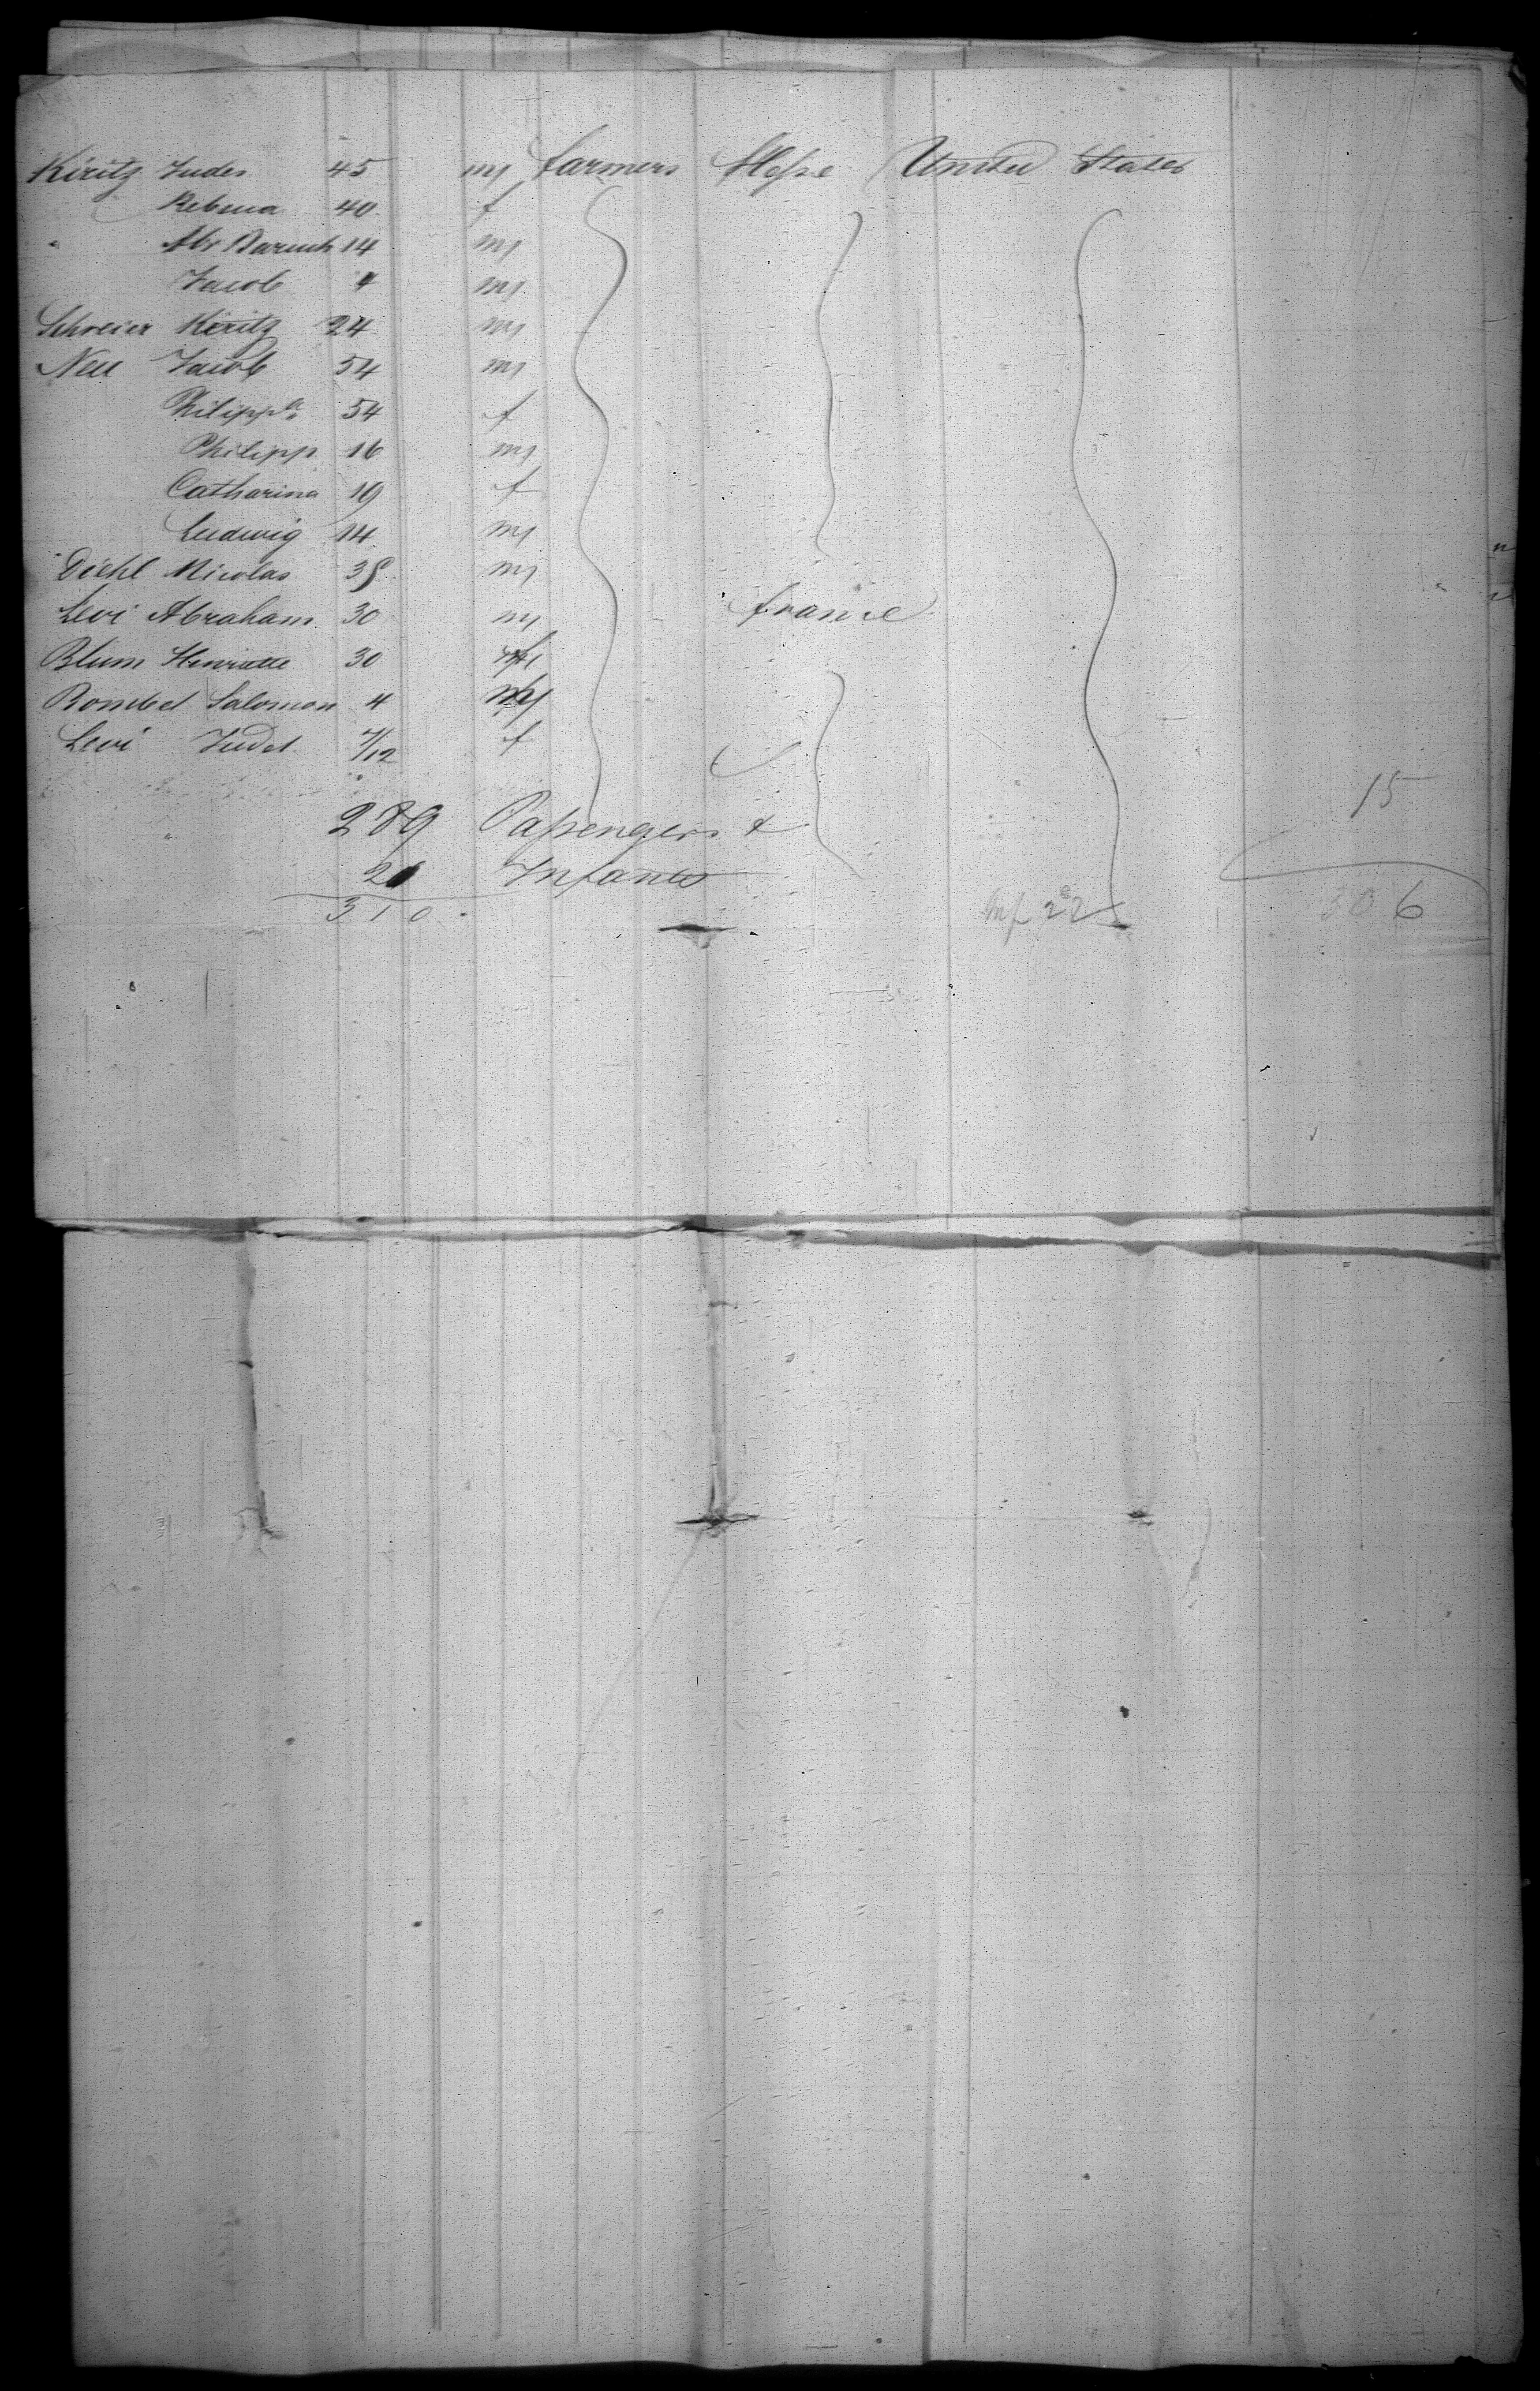 Kiritz Judes 45 m farmers Hesse United States
Rebecca 40 f
" Abr Baruch 14 m
Jacob 4 m
Schreier Kiritz 24 m
Neu Jacob 54 m
Philippa 54 f
Philipp 16 m
Catharina 19 f
Ludwig 14 m
Diehl Nicolas 38 m
Levi Abraham 30 m france
Blum Henriette 30 f
Rombel Salomon 4 m
Levi Judet 7/12 f
15
289 Passengers &
21 Infants
310 Inf 22 306